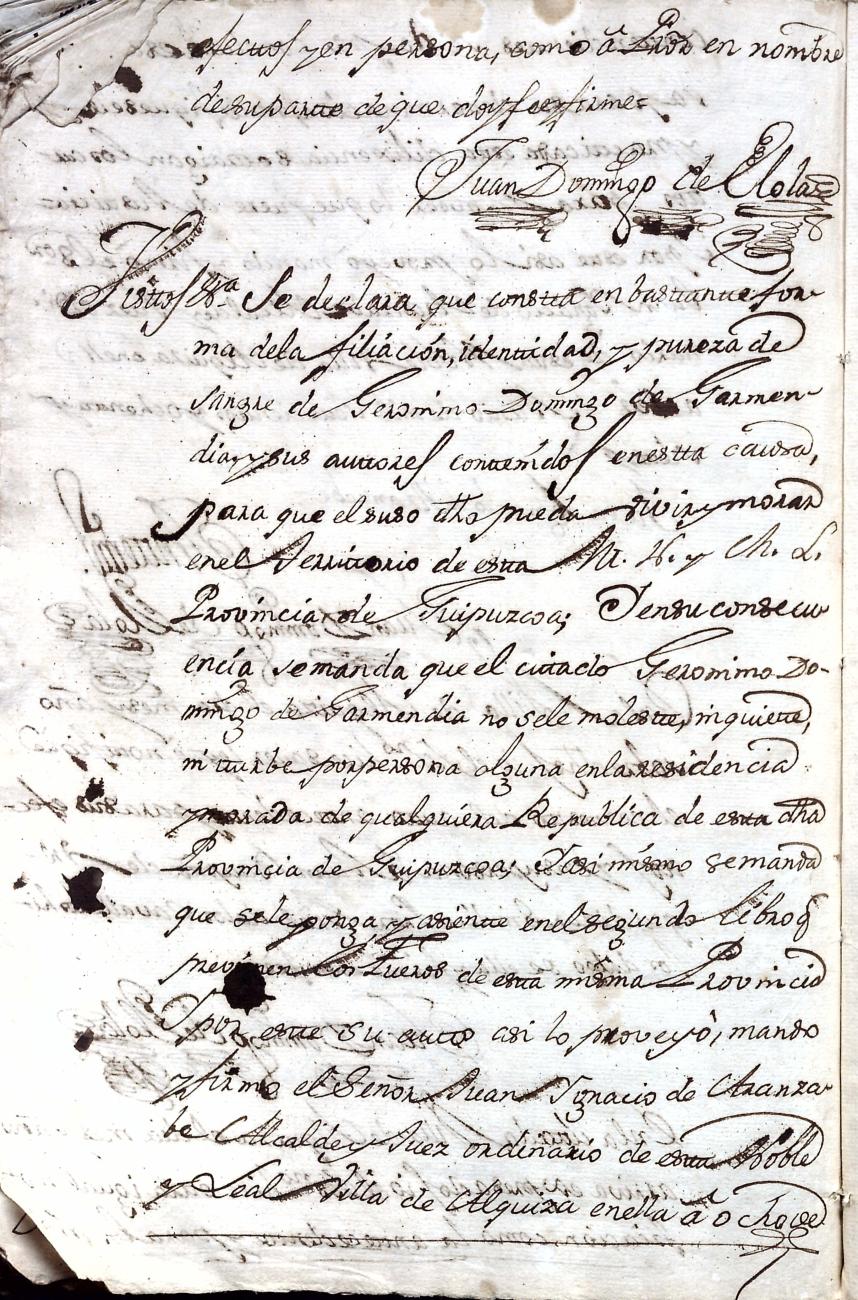 efectos y en persona, como a Pror en nombre
de su parte de que doy fee y firme =
Juan Domingo de Elola
Vistos &ra Se declara que constta en bastantte for-
ma de la filiación, identtidad, y pureza de
sangre de Geronimo Domingo de Garmen-
dia, y sus auttores contenidos en estta causa,
para que el suso dho pueda vivir y morar
en el Territtorio de esta M. N. y M. L.
Provincia de Guipuzcoa; Y en su consecu-
encía se manda que el cittado Geronimo Do-
mingo de Garmendia no se le molestte, inquiette,
ni tturbe por persona alguna en la residencia
y morada de qualquiera Republica de esta dha
Provincia de Guipuzcoa; Y asi mismo se manda
que se le ponga y asiente en el segundo Libro q
previenen los Fueros de esta misma Provincia
Y por este su auto asi lo proveyó, mando
y firmo el Señor Juan Ygnacio de Aranza-
be Alcalde y Juez ordinario de esta Noble
y Leal Villa de Alquiza en ella â ocho de